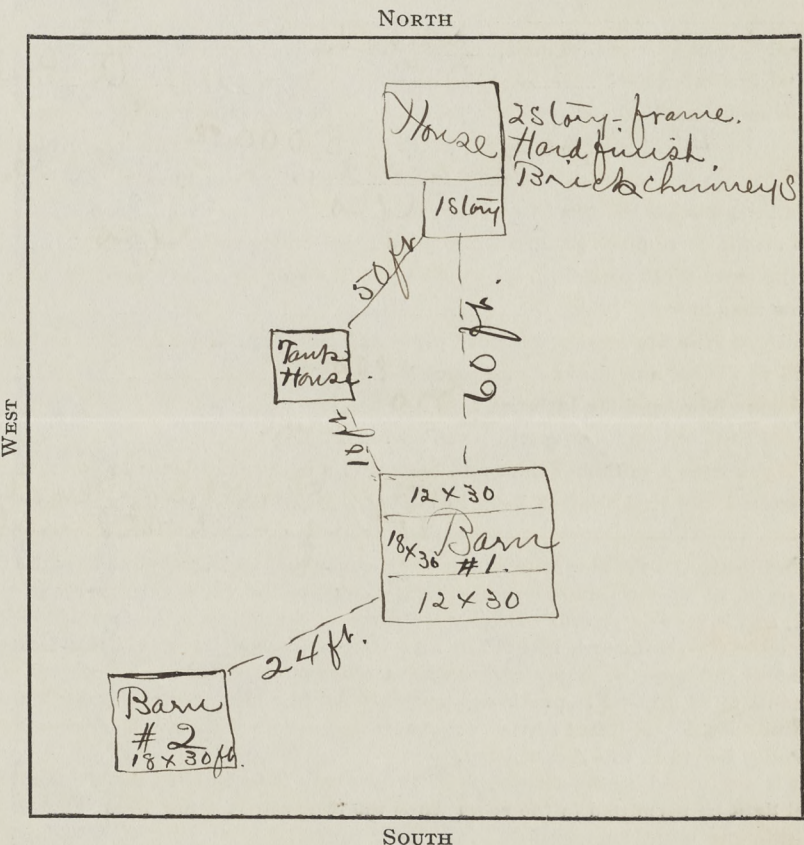 NORTH
House
2 Story-frame.
Hard finish
Brick chimneys
1 Story
50 ft
60 ft.
Tank
House.
WEST
18 ft
12 x 30
18 x 30 Barn
#1.
12 x 30
24 ft.
Barn
# 2
18 x 30 ft.
SOUTH